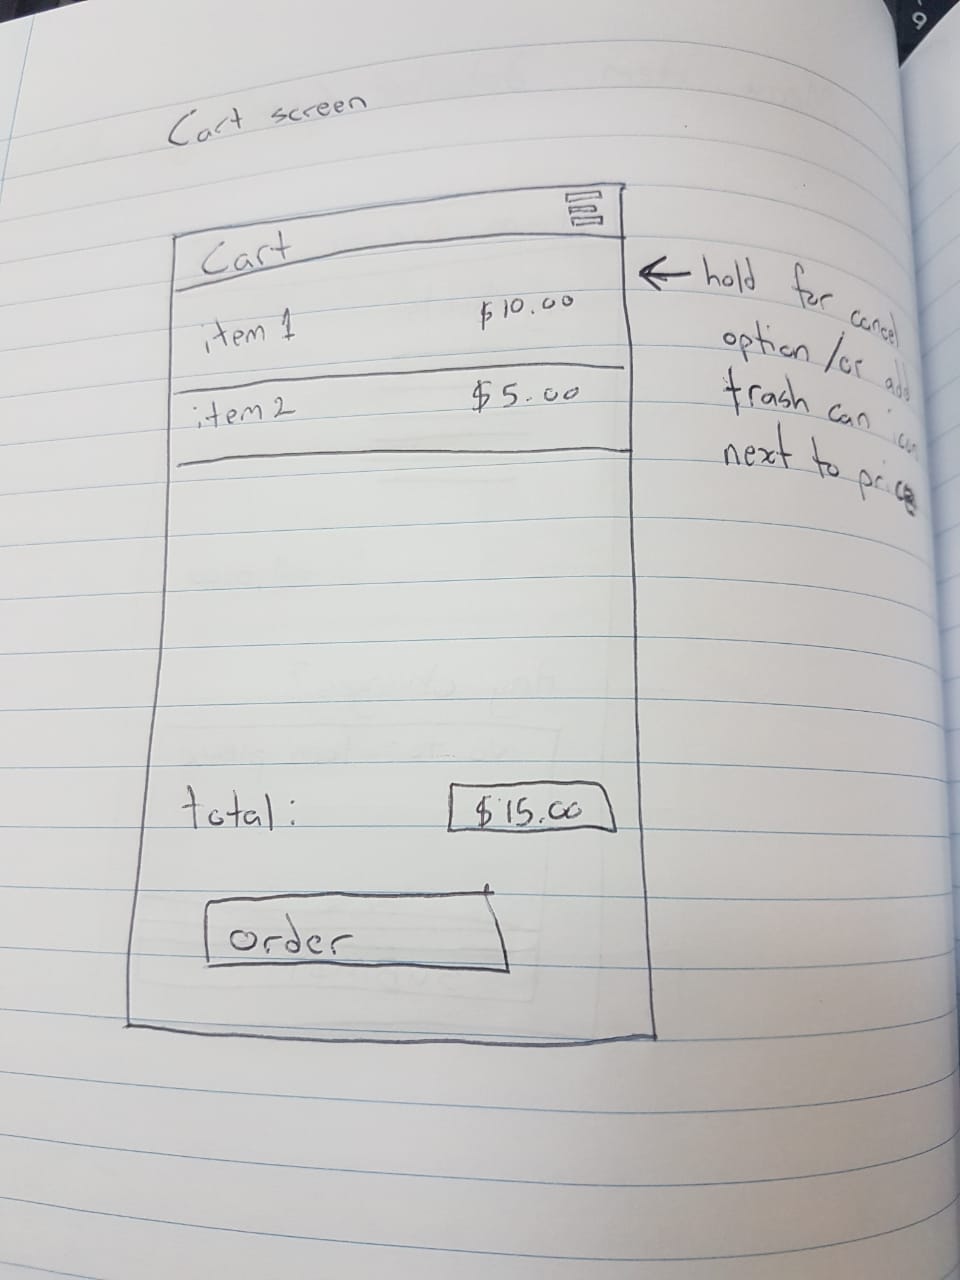 Cart screen
Cart
item 1 $10.00
item 2 $5.00
← hold for cancel
option /or add
trash can icon
next to price
total: $15.00
order